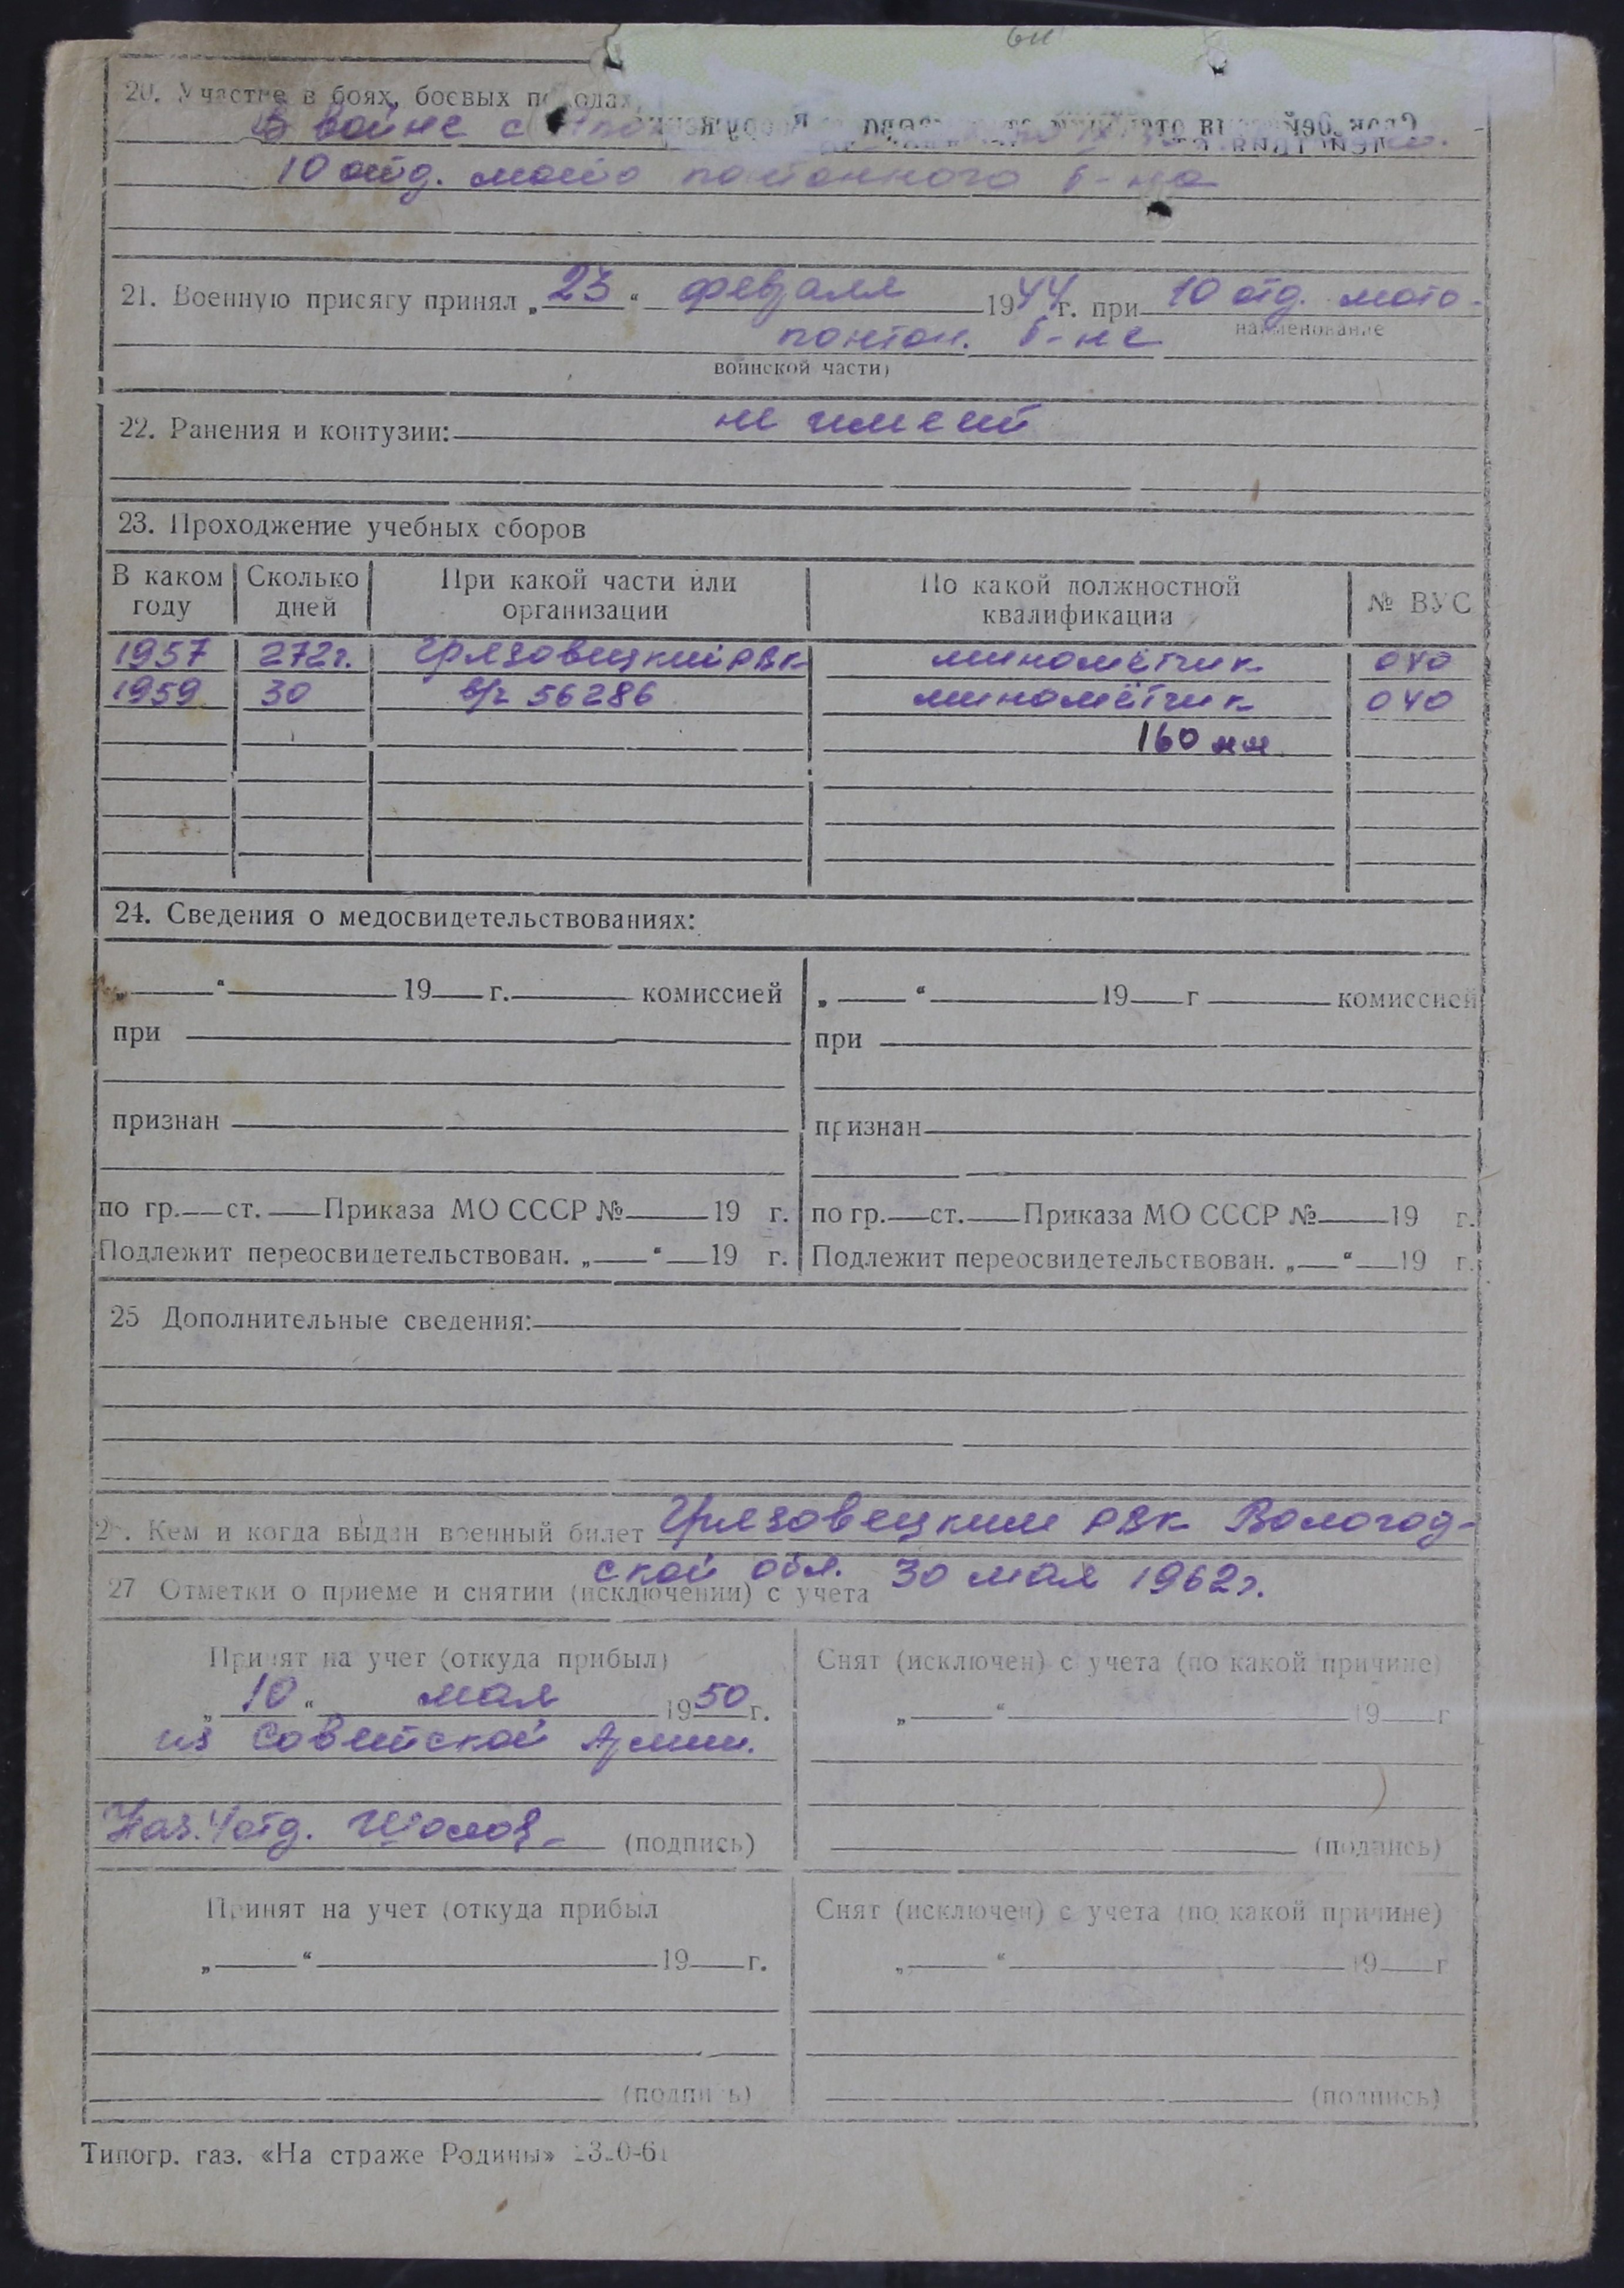 20. Участие в боях, боевых походах,
В войне с
10 отд. мото понтонного б-на
21. Военную присягу принял „23“ февраля 1944 г. при 10 отд. мото-
наименование
понтон. б-не
воинской части)
22. Ранения и контузии: не имеет
23. Прохождение учебных сборов
В каком году | Сколько дней | При какой части или организации | По какой должностной квалификации | № ВУС
1957 | 272г. | Грязовецкий РВК | миномётчик | 040
1959 | 30 | в/ч 56286 | миномётчик | 040
160 мм
24. Сведения о медосвидетельствованиях:
„ “ 19 г. комиссией | „ “ 19 г комиссией
при | при
признан | признан
по гр. ст. Приказа МО СССР № 19 г. | по гр. ст. Приказа МО СССР № 19 г.
Подлежит переосвидетельствован. „ “ 19 г. | Подлежит переосвидетельствован. „ “ 19 г.
25 Дополнительные сведения:
26. Кем и когда выдан военный билет Грязовецким РВК Вологод-
ской обл. 30 мая 1962г.
27 Отметки о приеме и снятии (исключении) с учета
Принят на учет (откуда прибыл) | Снят (исключен) с учета (по какой причине)
„10“ мая 1950 г. | „ “ 19 г
из Советской Армии.
Нач. 4 отд. (подпись) | (подпись)
Принят на учет (откуда прибыл | Снят (исключен) с учета (по какой причине)
„ “ 19 г. | „ “ 19 г
(подпись) | (подпись)
Типогр. газ. «На страже Родины»